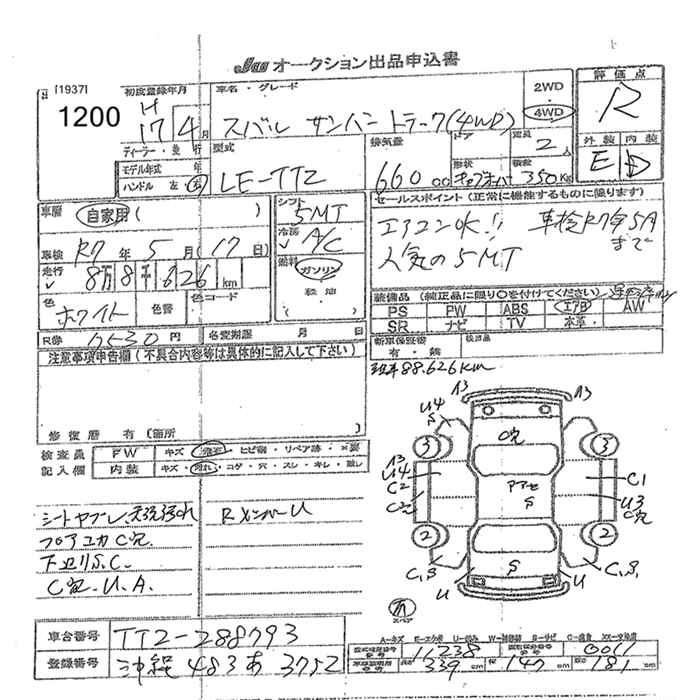 JU オークション出品申込書
[1937]
1200
初度登録年月
H 17年 4月
車名・グレード
スバル サンバートラック(4WD)
2WD
4WD
評価点
R
ディーラー・並行
モデル年式 年
ハンドル 左 右
型式
LE-TT2
排気量
660 cc
ドア
定員 2 人
形状
キャブオーバ
積載 350 Kg
外装 内装
E D
車歴 自家用 ( )
車検 R7 年 5 月 (17 日)
走行 8万 8千 626 km
色 ホワイト
色替
色コード
シフト 5MT
冷房 A/C
燃料 ガソリン
軽油
セールスポイント (正常に機能するものに限ります)
エアコンOK!! 車検R7年5月まで
人気の5MT
装備品 (純正品に限り○を付けてください)
PS PW ABS エアB AW
SR ナビ TV 本革
R券 7530 円
名変期限 月 日
新車保証書
有・無
欠品
注意事項申告欄 (不具合内容等は具体的に記入して下さい)
現車88.626km
修復歴 有 (箇所
検査員 FW キズ・飛石・ヒビ割・リペア跡・×要
記入欄 内装 キズ・汚れ・コゲ・穴・スレ・キレ・欠し
シートヤブレ
RメンバーU
フロアユカC穴
下廻りS.C.
C穴.U.A.
A3 A3
U4
S
C穴
3 3
A3
U4
C2
C穴
アアセ
S
C1
U3
C穴
2 2
C.S S C.S.
U U
スペア
A-キズ E-エクボ U-凹み W-補修跡 S-サビ C-腐食 XX-交換済
車台番号 TT2-288793
11238 0011
登録番号 沖縄 483 あ 3752
長さ 339 cm 幅 147 cm 高さ 181 cm